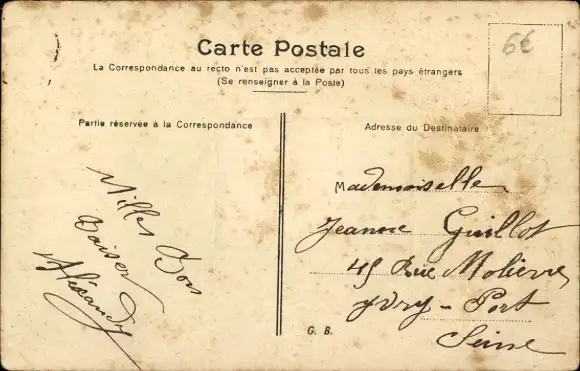 6€
Carte Postale
La Correspondance au recto n'est pas acceptée par tous les pays étrangers
(Se renseigner à la Poste)
Partie réservée à la Correspondance
Milles Bon
Baiser
Alexandry
Adresse du Destinataire
Mademoiselle
Jeanne Guillot
45 Rue Molière
Yvry - Port
Seine
G. B.